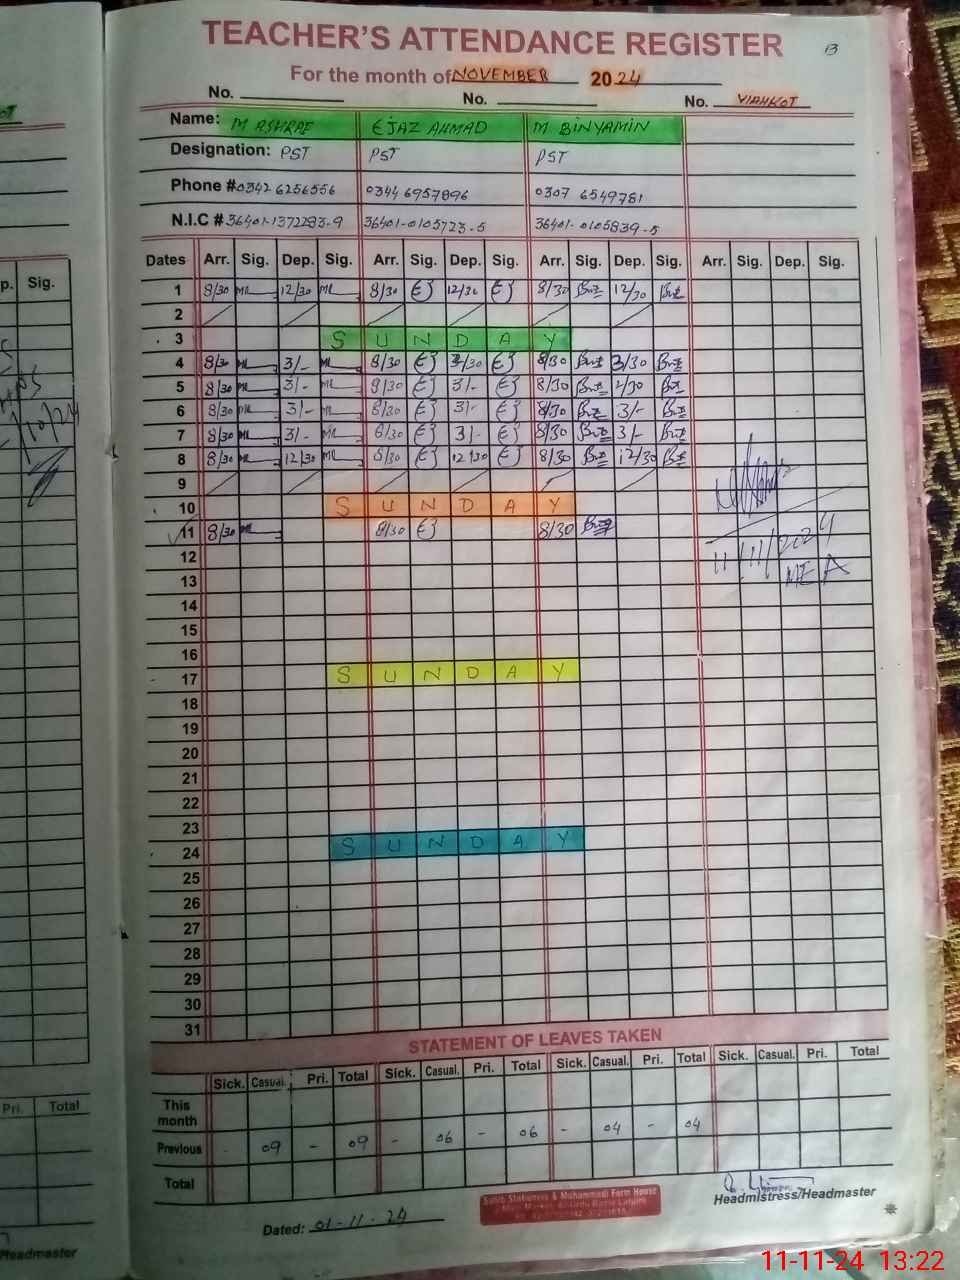 TEACHER'S ATTENDANCE REGISTER
B
For the month of NOVEMBER 2024
No. No. No. VIAHKOT
Name: M ASHRAF EJAZ AHMAD M BINYAMIN
Designation: PST PST PST
Phone # 0342 6256556 0344 6957896 0307 6549781
N.I.C # 36401-1372283-9 36401-0105723-5 36401-0105839-5
Dates Arr. Sig. Dep. Sig. Arr. Sig. Dep. Sig. Arr. Sig. Dep. Sig. Arr. Sig. Dep. Sig.
1 8/30 12/30 8/30 EJ 12/30 EJ 8/30 12/30
2
3 S U N D A Y
4 8/30 3/- 8/30 EJ 3/30 EJ 8/30 3/30
5 8/30 3/- 8/30 EJ 3/- EJ 8/30 2/30
6 8/30 3/- 8/30 EJ 3/- EJ 8/30 3/-
7 8/30 3/- 8/30 EJ 3/- EJ 8/30 3/-
8 8/30 12/30 8/30 EJ 12/30 EJ 8/30 12/30
9
10 S U N D A Y
11 8/30 8/30 EJ 8/30
11/11/2024
MEA
12
13
14
15
16
17 S U N D A Y
18
19
20
21
22
23
24 S U N D A Y
25
26
27
28
29
30
31
STATEMENT OF LEAVES TAKEN
Sick. Casual. Pri. Total Sick. Casual. Pri. Total Sick. Casual. Pri. Total Sick. Casual. Pri. Total
This month
Previous - 09 - 09 - 06 - 06 - 04 - 04
Total
Headmistress/Headmaster
Dated: 01-11-24
p. Sig.
Pri. Total
Headmaster
11-11-24 13:22